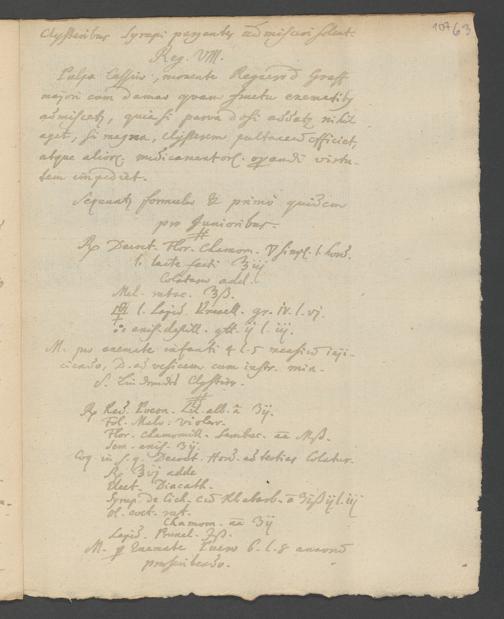 107 63
Clysteribus Syrupi purgantes admisceri solent.
Reg. VIII.
Pulpa Cassiæ, monente Regnero d Graff
majori cum damno quam fructu enematibq
admiscetr, quia si parva dosi addatr nihil
aget, si magna, clysterem pultaceū efficiet,
atque alior. medicamentor. operandi virtu-
tem impediet.
Sequuntr formulæ & primò quidem
pro Junioribus.
Rx Decoct. Flor. Chamom. simpl. l. hord.
l. lacte facti ʒiij
Colaturæ add.
Mel. rosac. ʒß.
l. Lapid. Prunell. gr. iv. l. vj.
anis. destill. gtt. ij l. iij.
M. pro enemate infanti 4 l. 5 mensiū inji-
ciendo, D. ad vesicam cum instr. min.
S. Lindrendes Clystier.
Rx Rad. Lil. alb. ā ʒij.
Fol. Malv. Violar.
Flor. Chamomill. Sambuc. āā Mß.
Sem. anis. ʒij.
Coq. in s. q. Decoct. Hord. ad tertias Colatur.
Rx ʒvj adde
Elect. Diacath.
Syrup. de Cich. cū Rhabarb. ā ʒiß ij l. iij
ol. coct. rut.
Chamom. āā ʒij
Lapid. Prunel. ʒß.
M. p Enemate Puero 6. l. 8 annorū
præscribendo.